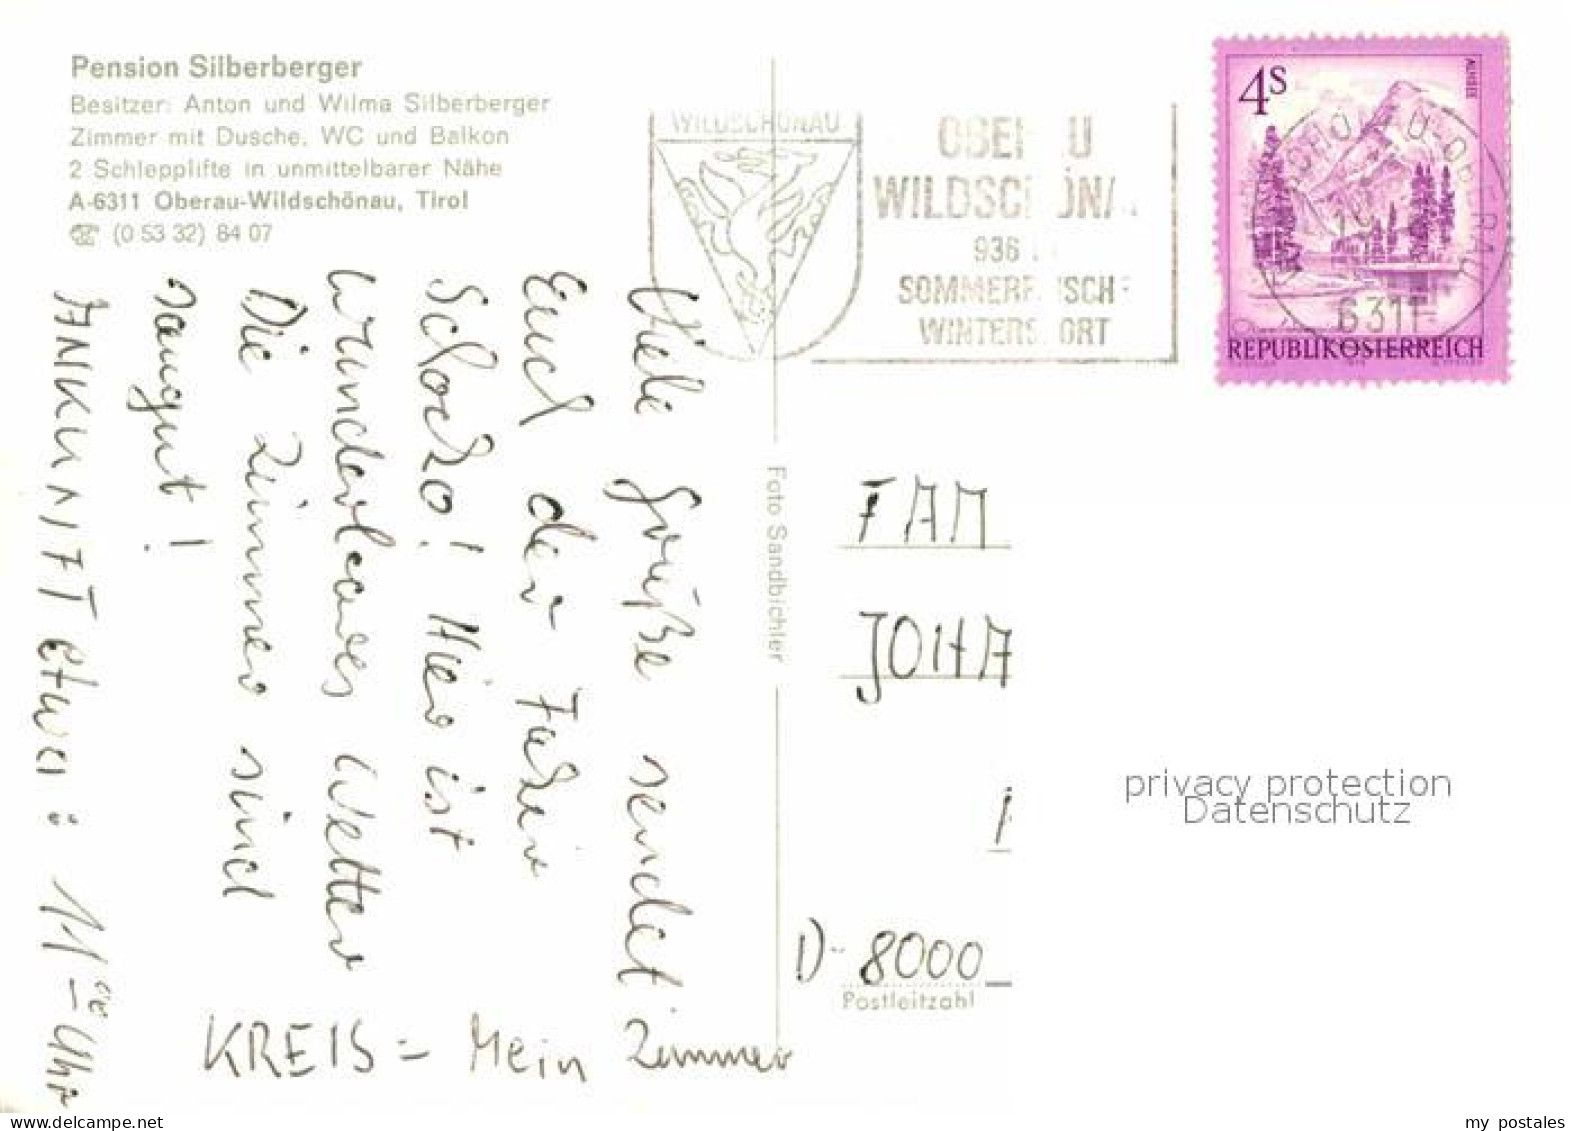 Pension Silberberger
Besitzer: Anton und Wilma Silberberger
Zimmer mit Dusche, WC und Balkon
2 Schlepplifte in unmittelbarer Nähe
A-6311 Oberau-Wildschönau, Tirol
☏ (0 53 32) 84 07
WILDSCHÖNAU
936
4S
ALMSEE
6311
REPUBLIK ÖSTERREICH
Viele Grüße sendet
Euch der
Hier ist
wunderbares Wetter
Die Zimmer sind
saugut!
ANKUNFT etwa: 11 00 Uhr
KREIS = Mein Zimmer
Foto Sandbichler
FAM
JOHA
D- 8000
Postleitzahl
privacy protection
Datenschutz
my postales